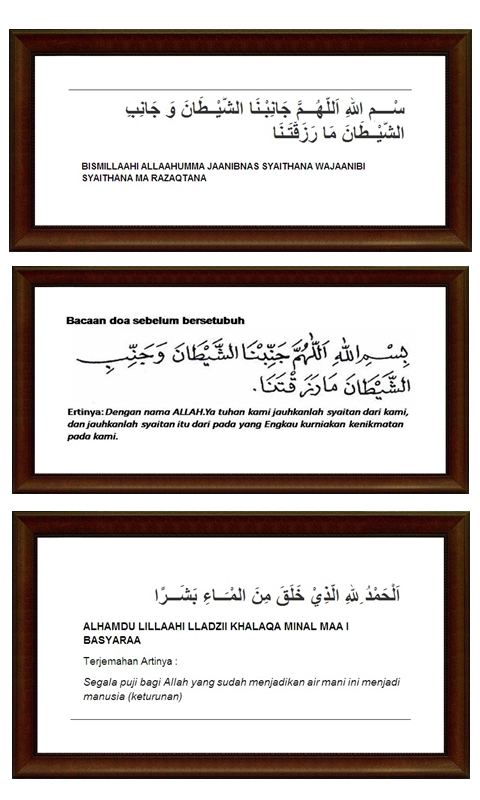 سْـــمِ اللهِ اَللّٰهُـــمَّ جَانِبْنَا الشَّيْـــطَانَ وَ جَانِبِ
الشَّيْـــطَانَ مَا رَزَقْتَنَا
BISMILLAAHI ALLAAHUMMA JAANIBNAS SYAITHANA WAJAANIBI
SYAITHANA MA RAZAQTANA
Bacaan doa sebelum bersetubuh
بِسْـمِ اللهِ اَللّٰهُمَّ جَنِّبْنَا الشَّيْطَانَ وَجَنِّبِ
الشَّيْطَانَ مَا رَزَقْتَنَا.
Ertinya: Dengan nama ALLAH.Ya tuhan kami jauhkanlah syaitan dari kami,
dan jauhkanlah syaitan itu dari pada yang Engkau kurniakan kenikmatan
pada kami.
اَلْحَمْدُ ِللهِ الَّذِيْ خَلَقَ مِنَ الْمَـــاءِ بَشَـــرًا
ALHAMDU LILLAAHI LLADZII KHALAQA MINAL MAA I
BASYARAA
Terjemahan Artinya :
Segala puji bagi Allah yang sudah menjadikan air mani ini menjadi
manusia (keturunan)